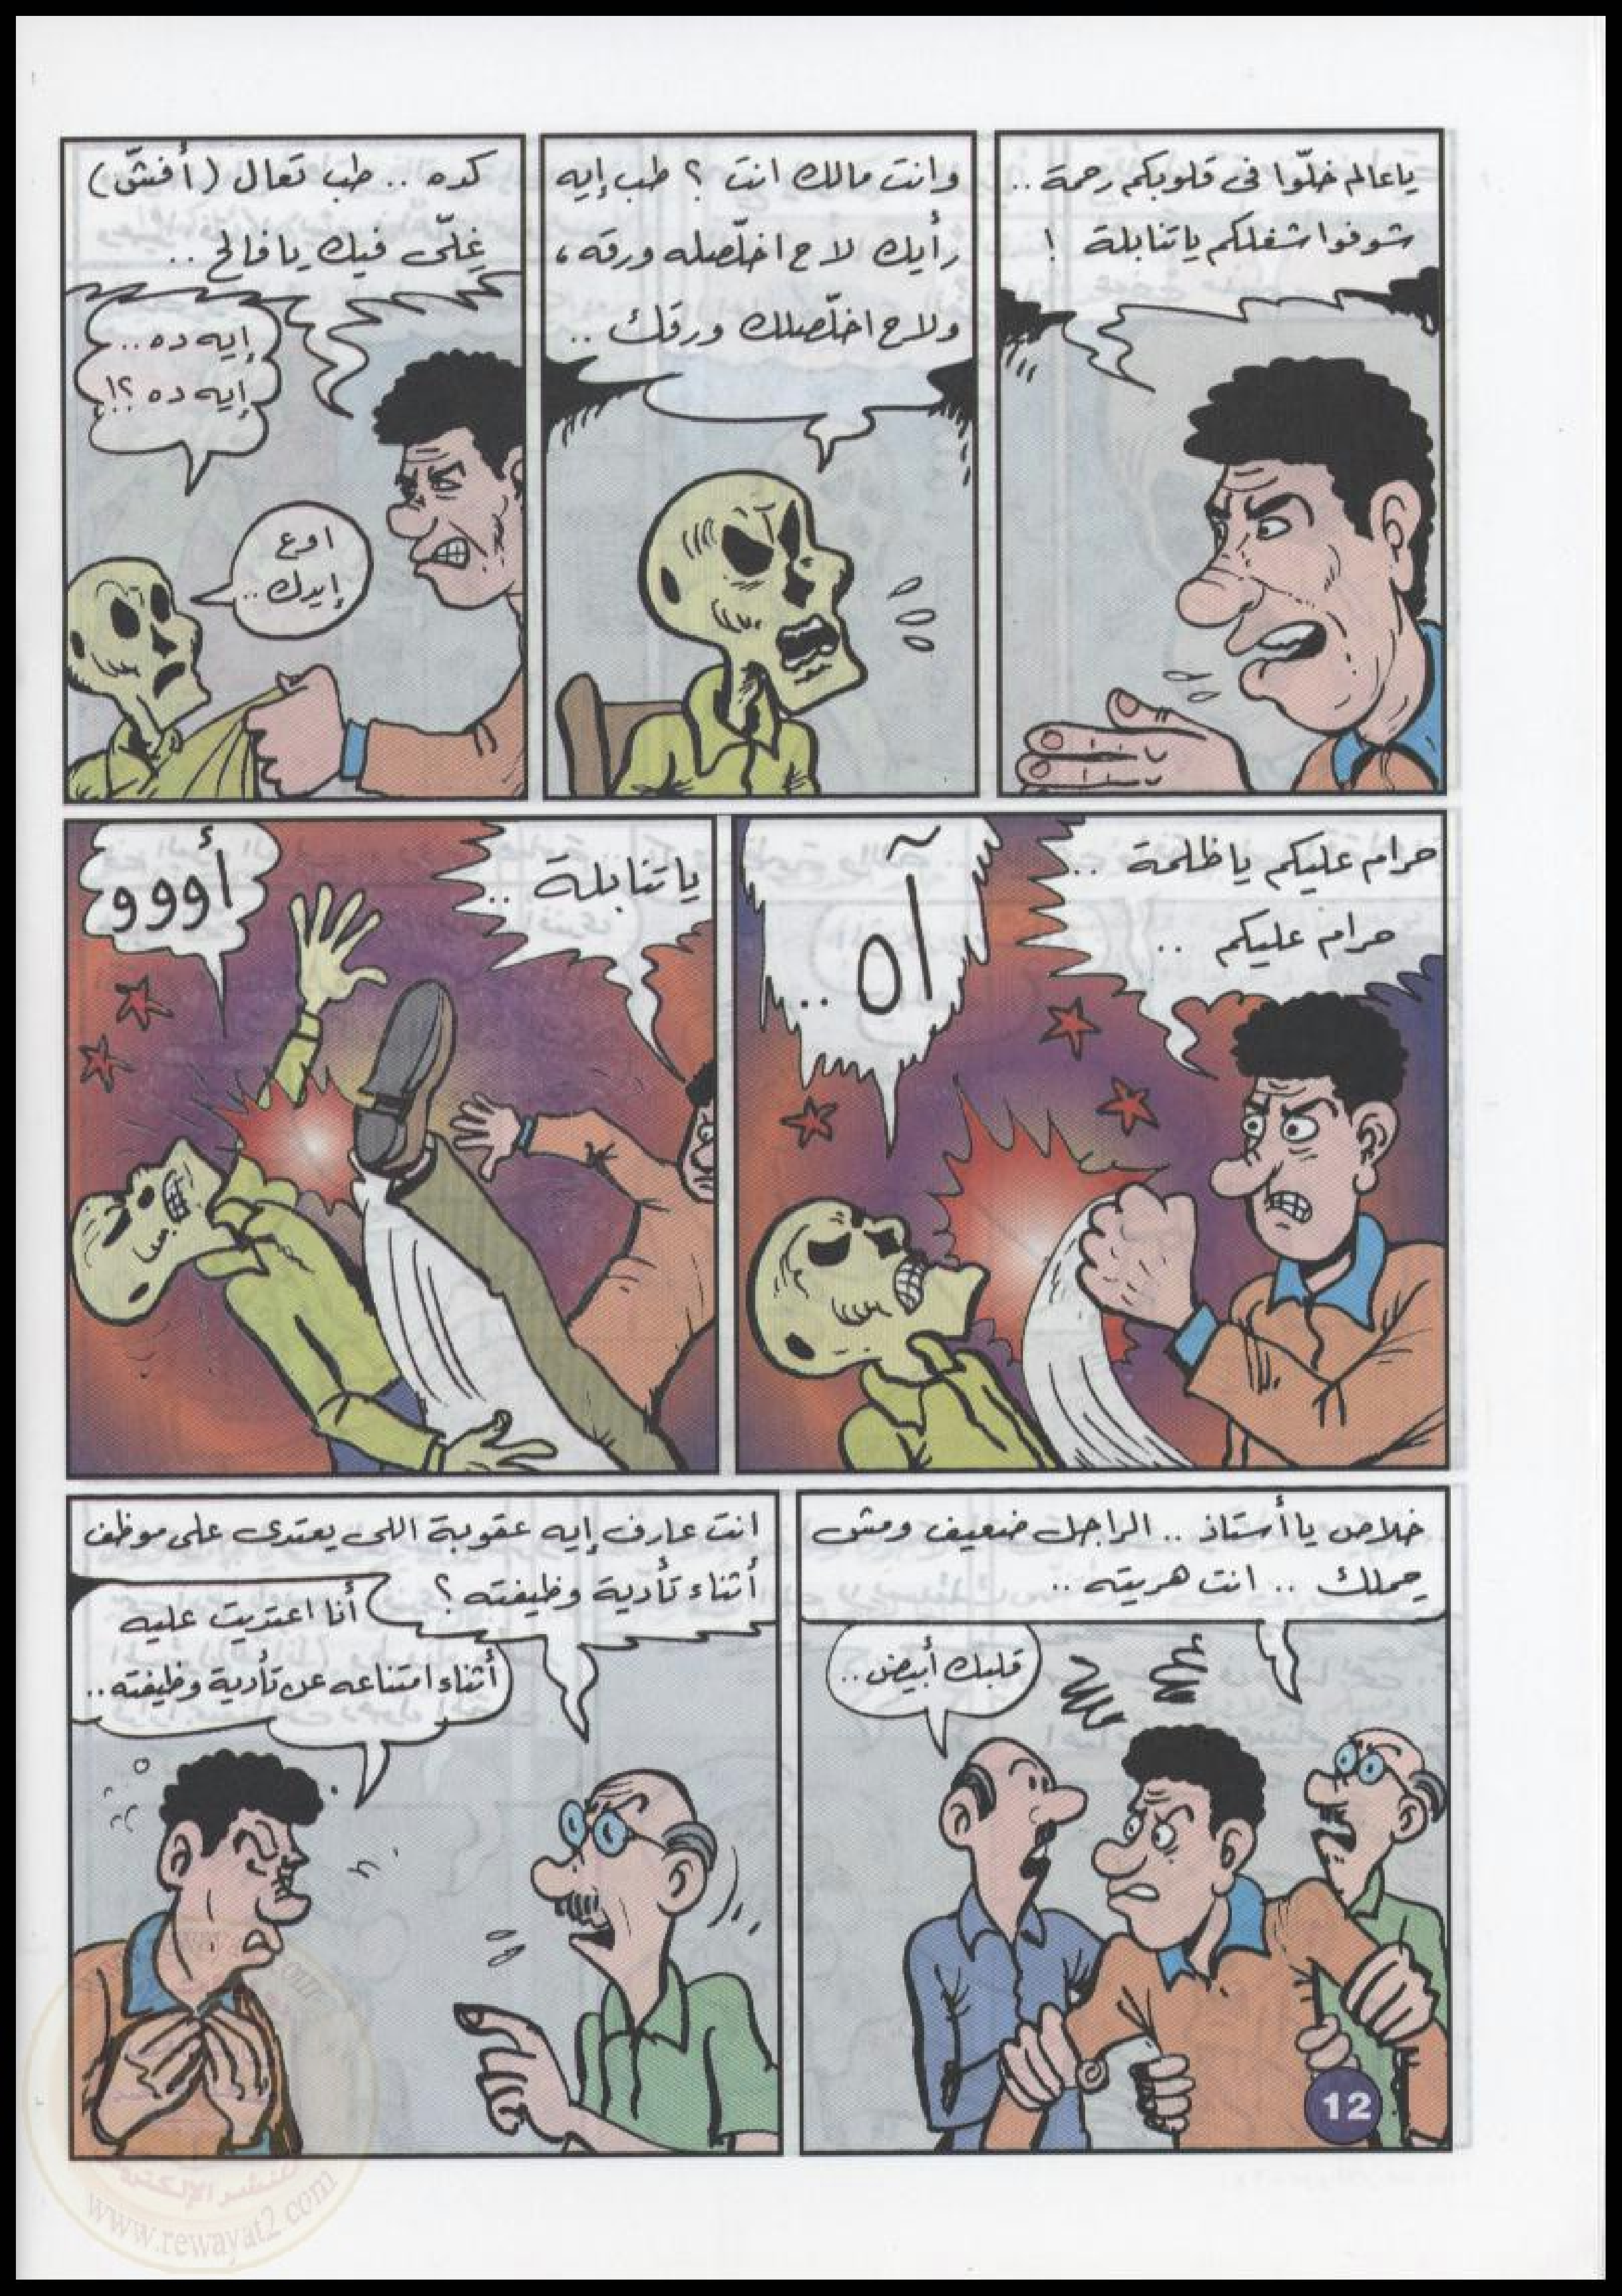 ياعالم خلّوا فى قلوبكم رحمة ..
شوفوا شغلكم ياتنابلة !
وانت مالك انت ؟ طب إيه
رأيك لا ح اخلّصله ورقه ،
ولا ح اخلّصلك ورقك ..
كده .. طب تعال (أفشّ)
غِلّى فيك يا فالح ..
إيه ده ..
إيه ده ؟!
اوع
إيدك ..
حرام عليكم يا ظلمة ..
حرام عليكم ..
آه ..
يا تنابلة ..
أووو
خلاص يا أستاذ .. الراجل ضعيف ومش
حملك .. انت هريته ..
قلبك أبيض ..
انت عارف إيه عقوبة اللى يعتدى على موظف
أثناء تأدية وظيفته ؟
أنا اعتديت عليه
أثناء امتناعه عن تأدية وظيفته ..
12
للنشر الإلكترونى
www.rewayat2.com